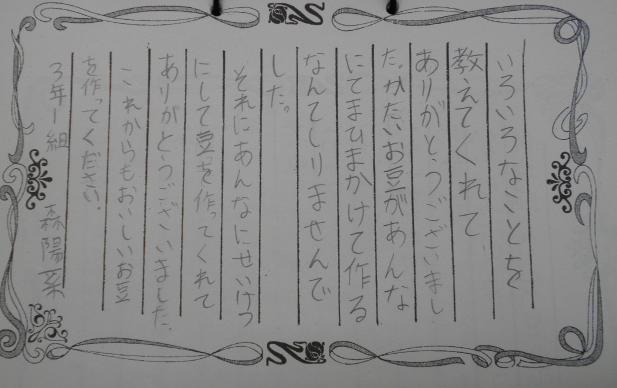 いろいろなことを
教えてくれて、
ありがとうございまし
た。かたいお豆があんな
にてまひまかけて作る
なんてしりませんで
した。
それにあんなにせいけつ
にして豆を作ってくれて
ありがとうございました。
これからもおいしいお豆
を作ってください。
3年1組 森陽系